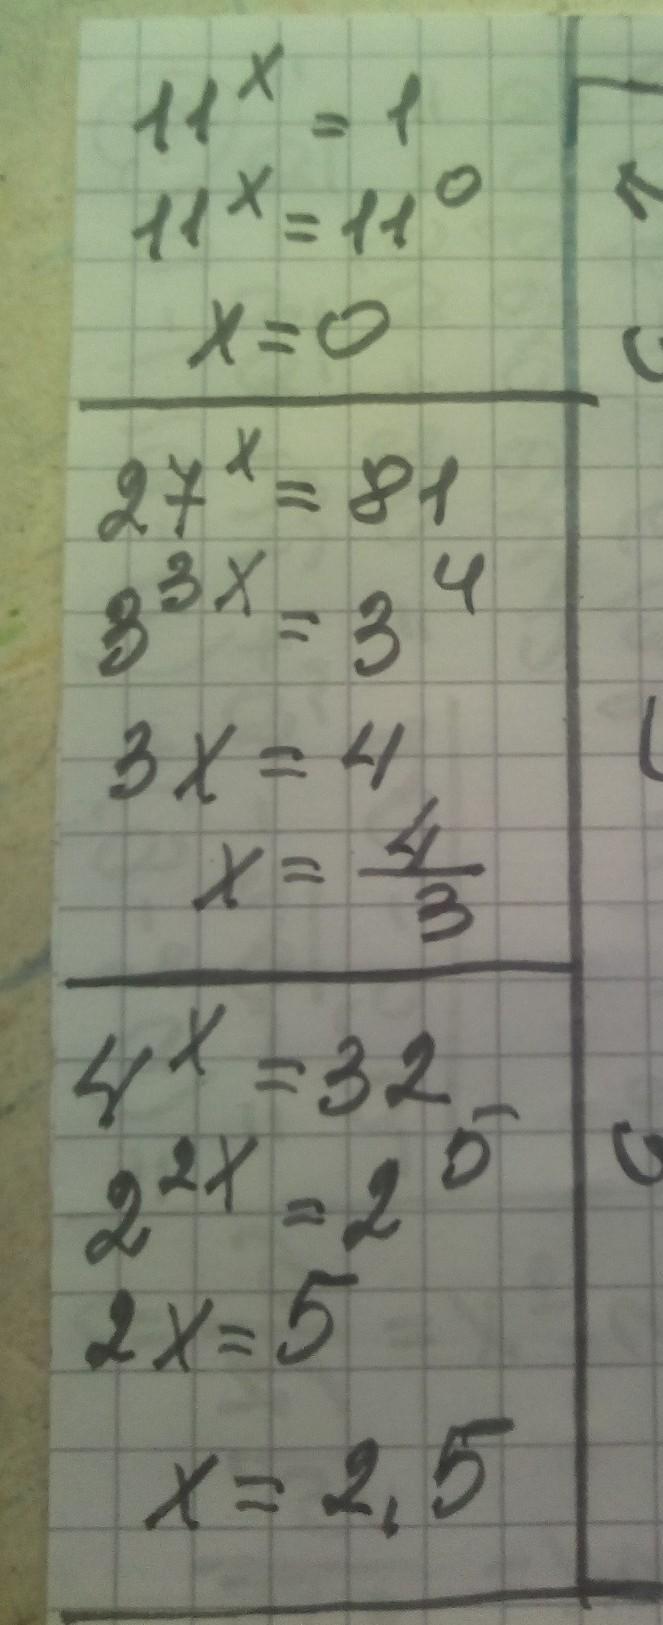 11^x = 1
11^x = 11^0
x = 0
27^x = 81
3^3x = 3^4
3x = 4
x = 4/3
4^x = 32
2^2x = 2^5
2x = 5
x = 2,5